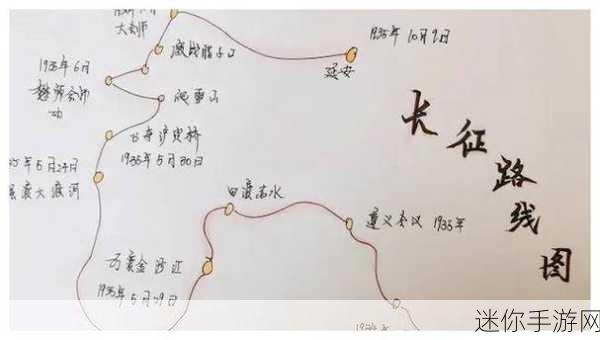 大剑师
激战腊子口
1935年10月9日
延安
1935年6月
懋功会师
爬雪山
飞夺泸定桥
1935年5月30日
年5月24日
强渡大渡河
四渡赤水
遵义会议 1935年
巧渡金沙江
1935年5月29日
长征路线图
迷你手游网